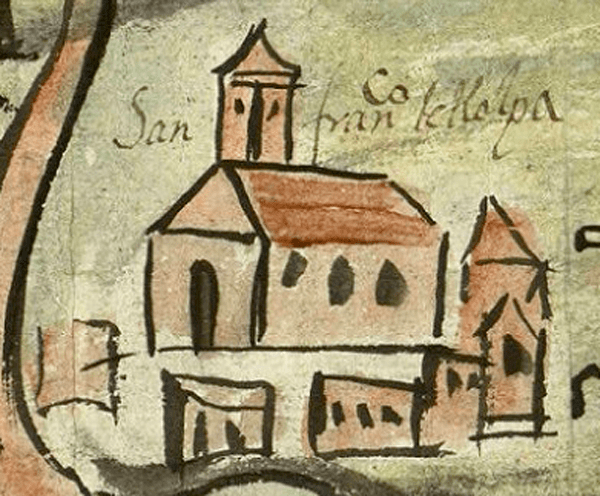 San fran^co tellolpa